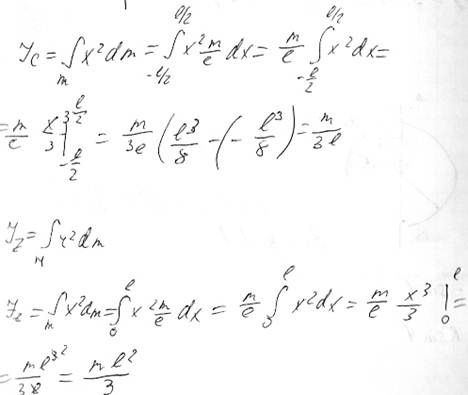 Jc = ∫m x²dm = ∫-l/2^l/2 x² m/l dx = m/l ∫-l/2^l/2 x²dx =
= m/l x³/3 |-l/2^l/2 = m/3l (l³/8 - (- l³/8) = m/3l
Jz = ∫m r²dm
Jz = ∫m x²dm = ∫0^l x² m/l dx = m/l ∫0^l x²dx = m/l x³/3 |0^l =
= ml³²/3l = ml²/3